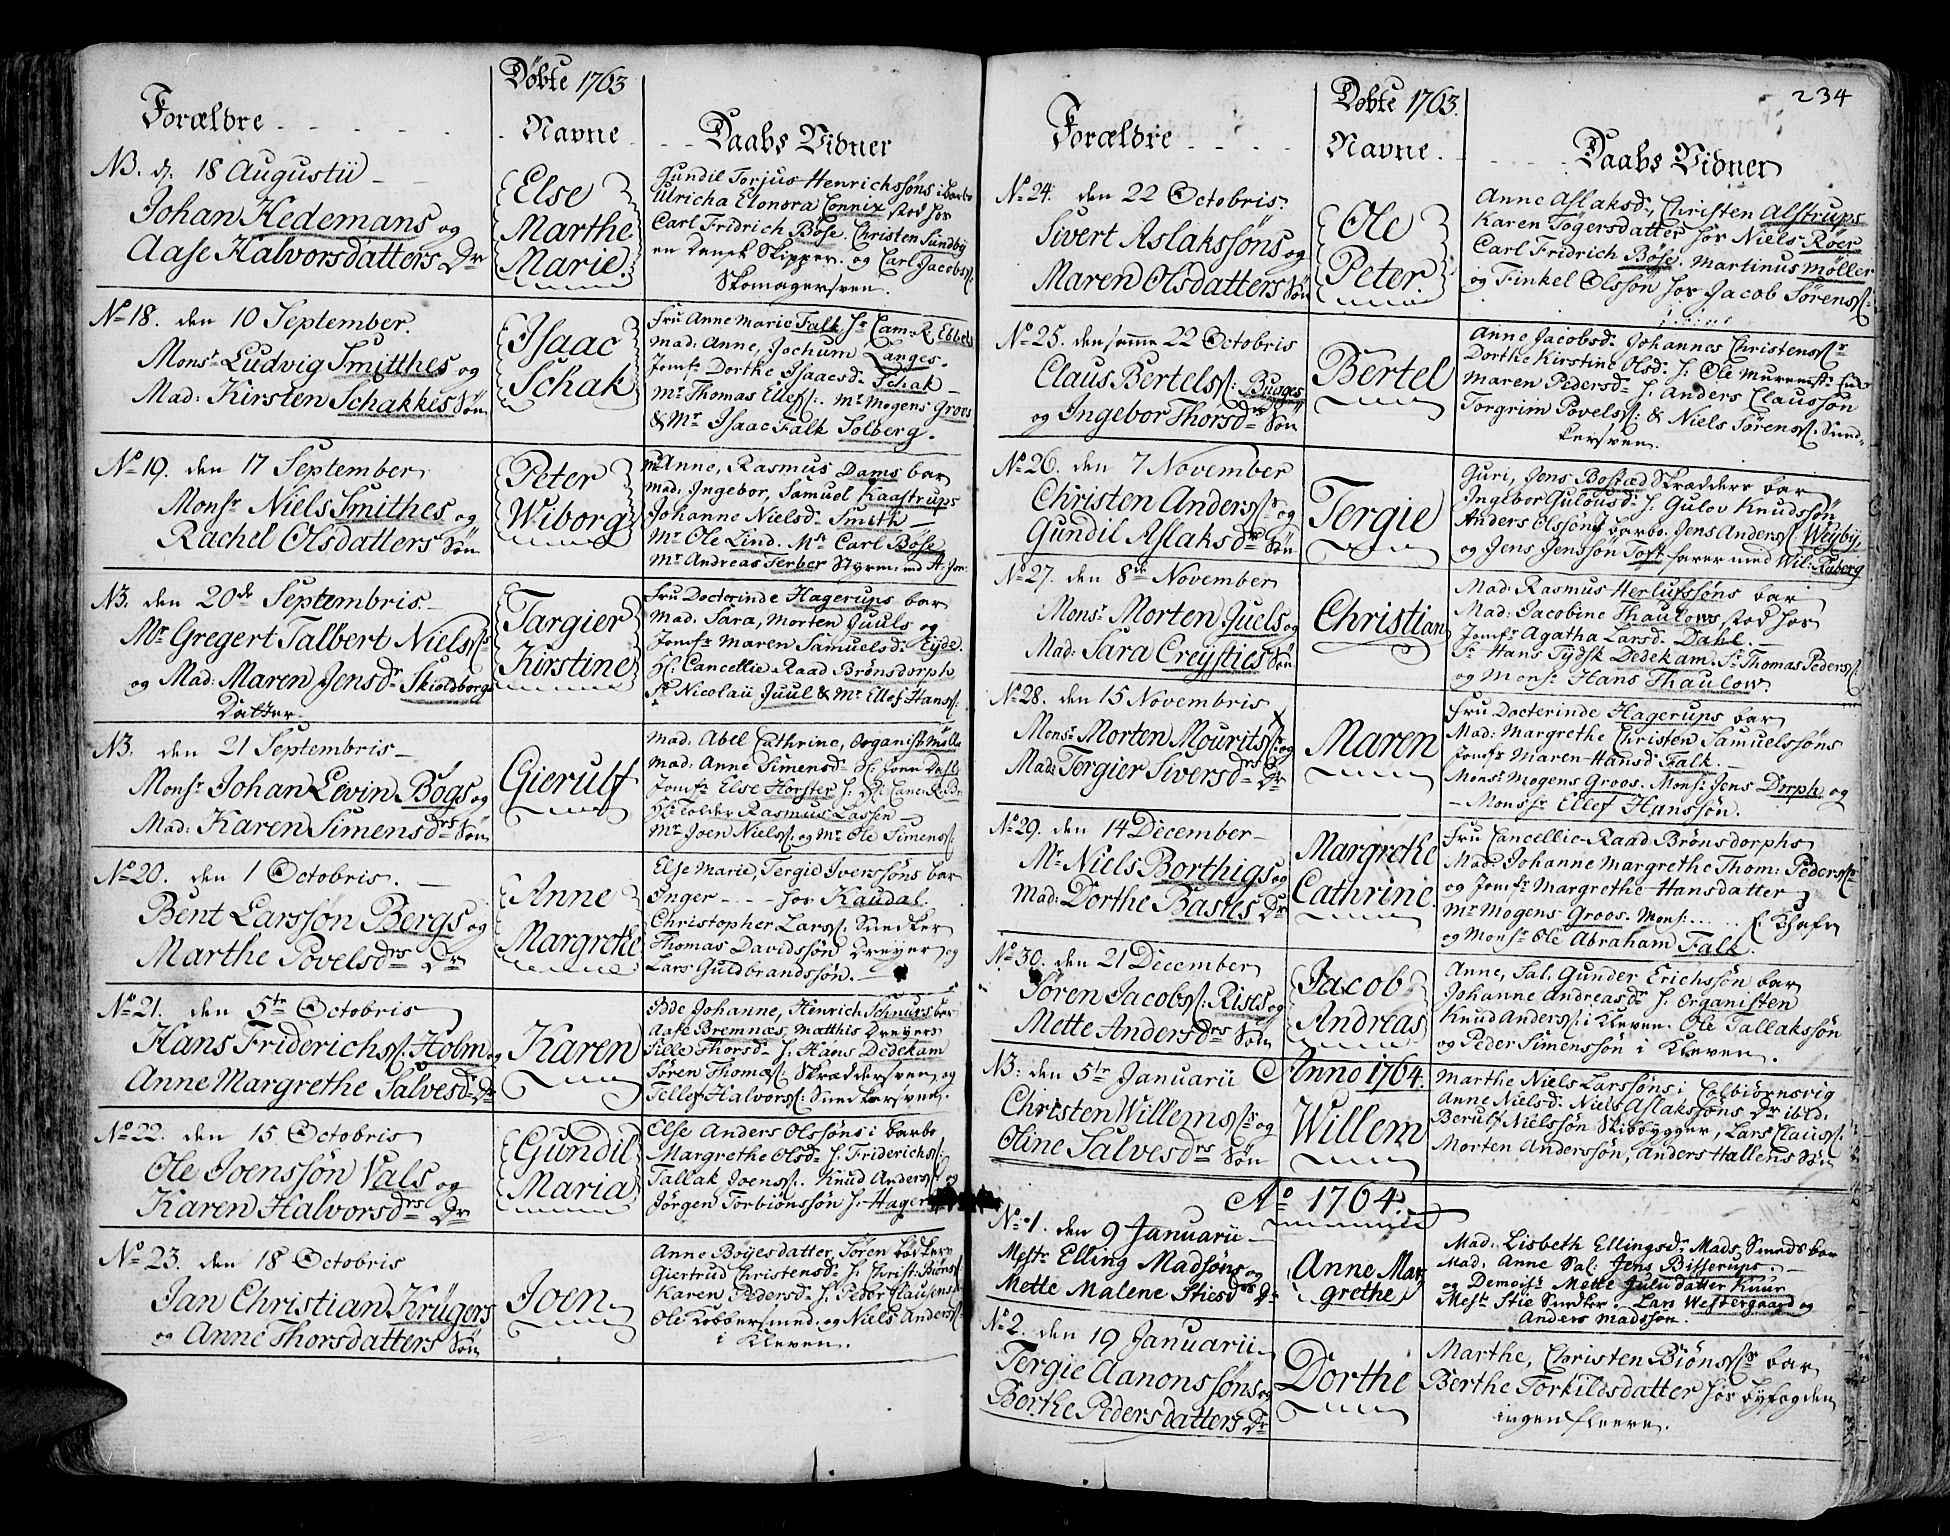 Døbte 1763
Forældre
Navne
Daabs Vidner
N3. d. 18 Augustii
Johan Hedemans og
Aase Halvorsdatters Dr
Else
Marthe
Marie.
Gundil Torjus Henrichssøns i Barbo
Ulricha Elonora Connix stod hos
Carl Fridrich Bøse. Christen Sundby
en Dansk Skipper. og Carl Jacobs:
Skomagersven.
No 18. den 10 September.
Monsr Ludvig Smitthes og
Mad: Kirsten Schakkes Søn
Isaac
Schak
Fru Anne Marie Falk Hr Cam. R. Ebbels
Mad: Anne, Jochum Langes.
Jomfr Dorthe Isaacsdr Schak
Mr Thomas Elless. Mr Mogens Groos
& Mr Isaac Falk Solberg.
No 19. den 17 September
Monsr Niels Smithes og
Rachel Olsdatters Søn
Peter
Wiborg
Anne, Rasmus Dams bar
Mad: Ingebor, Samuel Kaastrups
Johanne Nielsdr Smith
Mr Ole Lind. Mr Carl Bøse
Mr Andreas Ferber Styrm: md H. Jon:
N3. den 20de Septembris
Mr Gregert Talbert Nielss:s
og Mad: Maren Jensdr Skioldborgs
Datter.
Targier
Kirstine
Fru Doctorinde Hagerups bar
Mad. Sara, Morten Juuls og
Jomfr Maren Samuelsdr Eyde
Hr Cancellie Raad Brønsdorph
Sr Nicolaii Juul & Mr Ellef Hans:
N3. den 21 Septembris
Monsr Johan Levin Bøgs og
Mad: Karen Simensdrs Søn
Gierulf
Mad: Abel Cathrine, Organist Møll
Mad: Anne Simensdr
Jomfr Else Horster
Hr Tolder Rasmus Lassen
Mr Joen Niels: og Mr Ole Simens:
No 20. den 1 Octobris.
Bent Larssøn Bergs og
Marthe Povelsdrs Dr
Anne
Margrethe
Else Marie, Tergid Iverssøns bar
Inger - - - hos Kaudal.
Christopher Lars: Snedker
Thomas Davidssøn Dreyer og
Lars Guldbrandssøn.
No 21. den 5te Octobris
Hans Friderichs: Holm og
Anne Margrethe Salvesdr Dr
Karen
Bde Johanne, Henrich Schnurs bar
Aase Bremnæs, Matthis Dreyers
Sille Thorsdr H. Hans Dedekam
Søren Thomæs: Skræddersven, og
Tellef Halvors: Snedkersven.
No 22. den 15 Octobris
Ole Joenssøn Vals og
Karen Halvorsdrs Dr
Gundil
Maria
Else Anders Olssøns i Barbo
Margrethe Olsdr H. Friderichs:
Tallak Joens:. Knud Anders: og
Jørgen Torbiønssøn H. Hager
No 23. den 18 Octobris
Jan Christian Krügers
og Anne Thorsdatters Søn
Joen
Anne Bøyesdatter, Søren Bødkers
Giertrud Christensdr H. Christ: Biøns
Karen Pedersdr H. Peder Clausens
Ole Kobbersmed. og Niels Anders:
i Kleven.
234
Døbte 1763.
Forældre
Navne.
Daabs Vidner
No 24. den 22 Octobris.
Sivert Aslakssøns og
Maren Olsdatters Søn
Ole
Peter.
Anne Aslaksd., Christen Alstrups
Karen Tøgersdatter hos Niels Røer
Carl Fridrich Bøse. Martinus Møller
og Finkel Olssøn hos Jacob Sørens:
No 25. den samme 22 Octobris
Claus Bertels: Buøges
og Ingebor Thorsdrs Søn
Bertel
Anne Jacobsdr Johannes Christens:
Dorthe Kirstine Olsdr H. Ole Muremstr
Maren Pedersdr H. Anders Claussøn
Torgrim Povels: & Niels Sørens: Sned-
kersven.
No 26. den 7 November
Christen Anders:s og
Gundil Aslaksdrs Søn
Tergie
Guri, Jens Bostæd Skrædders bar
Ingebor Gulousdr H. Gulov Knudssøn
Anders Olssøn i Barbo. Jens Anders: Weyby,
og Jens Jenssøn Toft farer med Wil: Ruberg
No 27. den 8de November
Monsr Morten Juels og
Mad: Sara Creysties Søn
Christian
Mad: Rasmus Herlufssøns bar
Mad: Jacobine Thaulows, stod hos
Jomfr Agatha Larsdr Dahl.
Sr Hans Tydsk Dedekam. Sr Thomas Peders:
og Monsr Hans Thaulow.
No 28. den 15 Novembris
Monsr Morten Mourits:s og
Mad: Tergier Siversdrs Dr
Maren
Fru Doctorinde Hagerups bar
Mad: Margrethe Christen Samuelssøns
Jomfr Maren Hansd Falk.
Monsr Mogens Groos. Monsr Jens Dorph og
Monssr Ellef Hanssøn.
No 29. den 14 December
Mr Niels Borthigs og
Mad: Dorthe Basses Dr
Margrethe
Cathrine
Fru Cancellie-Raad Brønsdorphs
Mad: Johanne Margrethe Thom: Peders:s
og Jomfr Margrethe Hansdatter
Mr Mogens Groos. Monsr.....
og Monsr Ole Abraham Falk.
No 30. den 21 December
Søren Jacobs: Rises og
Mette Andersdrs Søn
Jacob
Andreas
Anne, Sal. Gunder Erichssøn bar
Johanne Andreasdr H. Organisten
Knud Anders: i Kleven. Ole Tallakssøn
og Peder Simenssøn i Kleven.
N3: den 5te Januarii
Anno 1764.
Christen Willems:s og
Oline Salvesdrs Søn
Willem
Marthe Niels Larssøns i Colbiørnsvig
Anne Nielsdr Niels Aslakssøns Dr ibid.
Berulf Nielssøn Skibbygger, Lars Claus:
Morten Anderssøn, Anders Hallens Søn
Ao 1764.
No 1. den 9 Januarii
Mestr Elling Madsøns og
Mette Malene Stiesdrs Dr
Anne Mar
grethe
Mad: Lisbeth Ellingsdr Mads Smeds bar
Mad: Anne Sal: Jens Bisserups.
og Demoisr Mette Juludatter Knur
Mestr Stie Snedker. Lars Westergaard og
Anders Madssøn.
No 2. den 19 Januarii
Tergie Aanonssøns og
Borthe Pedersdatters Dr
Dorthe
Marthe, Christen Biøns:s bar
Berthe Torkildsdatter hos byfogden
ingen fleere.